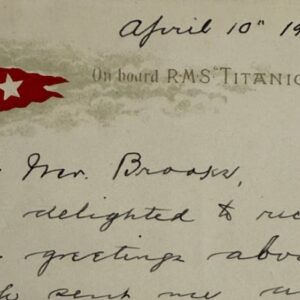 April 10" 19
On board R.M.S. "TITANIC
Mr. Brooks,
delighted to rec
greetings aboa
sent me